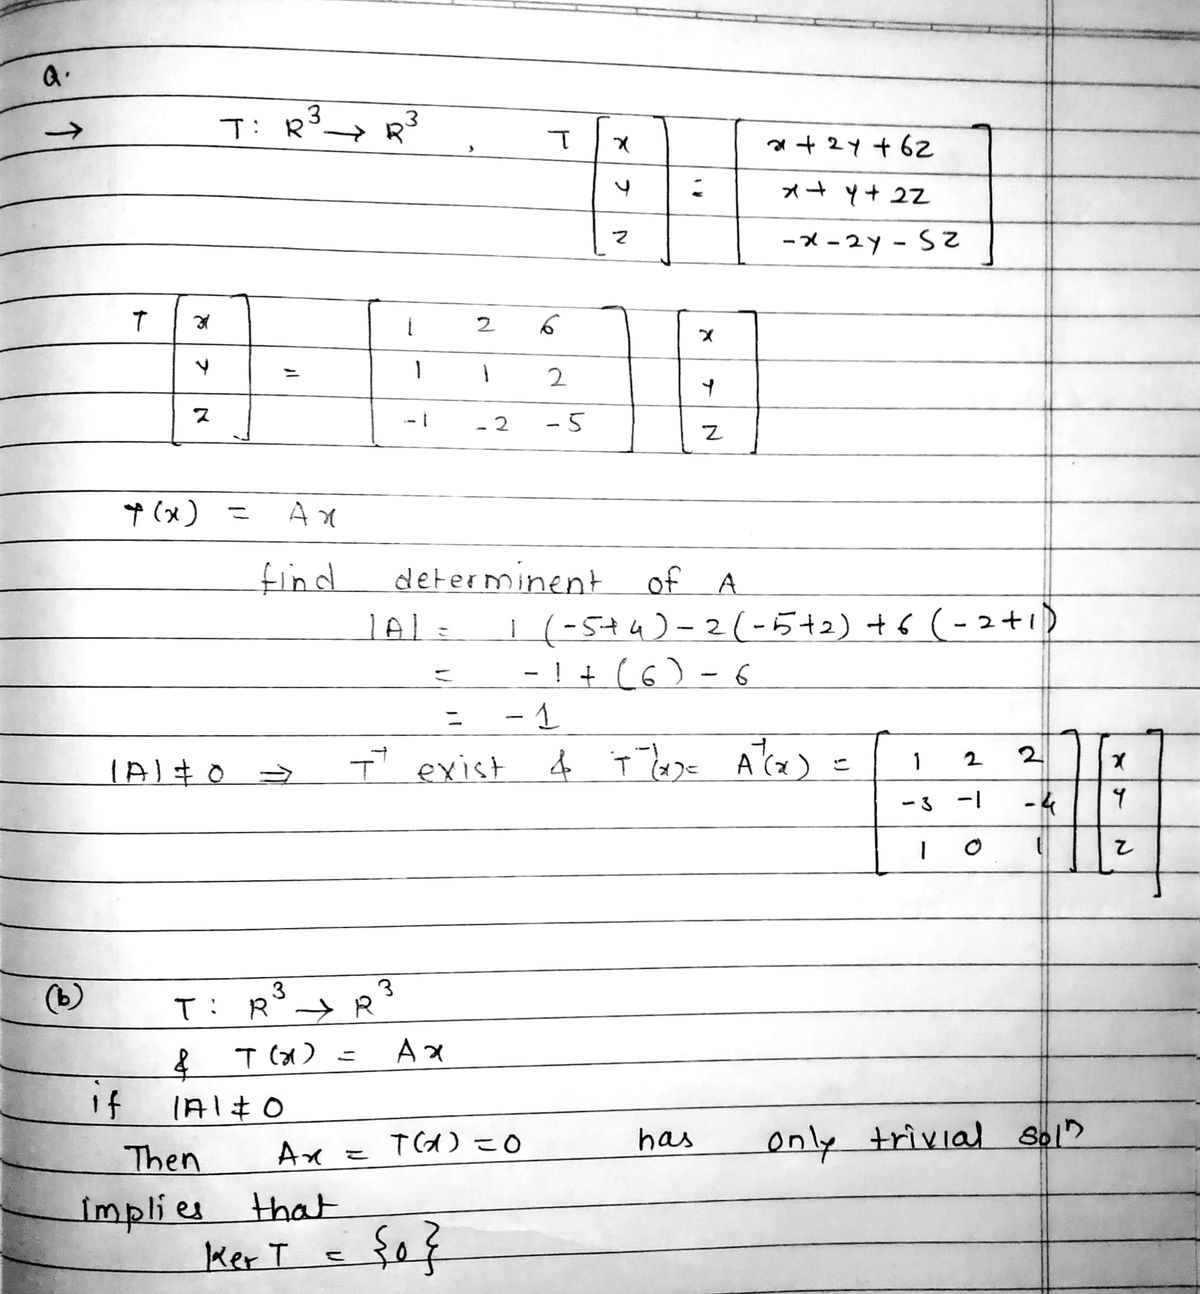 Q.
→ T: R³ → R³ , T [x y z] = [x + 2y + 6z
x + y + 2z
-x - 2y - 5z]
T [x y z] = [1 2 6
1 1 2
-1 -2 -5] [x y z]
T(x) = Ax
find determinent of A
|A| = 1 (-5+4) - 2(-5+2) + 6 (-2+1)
= -1 + (6) - 6
= -1
|A| ≠ 0 ⇒ T⁻¹ exist & T⁻¹(x) = A⁻¹(x) = [1 2 2
-3 -1 -4
1 0 1] [x y z]
(b) T: R³ → R³
& T(x) = Ax
if |A| ≠ 0
Then Ax = T(x) = 0 has only trivial solⁿ
implies that
Ker T = {0}